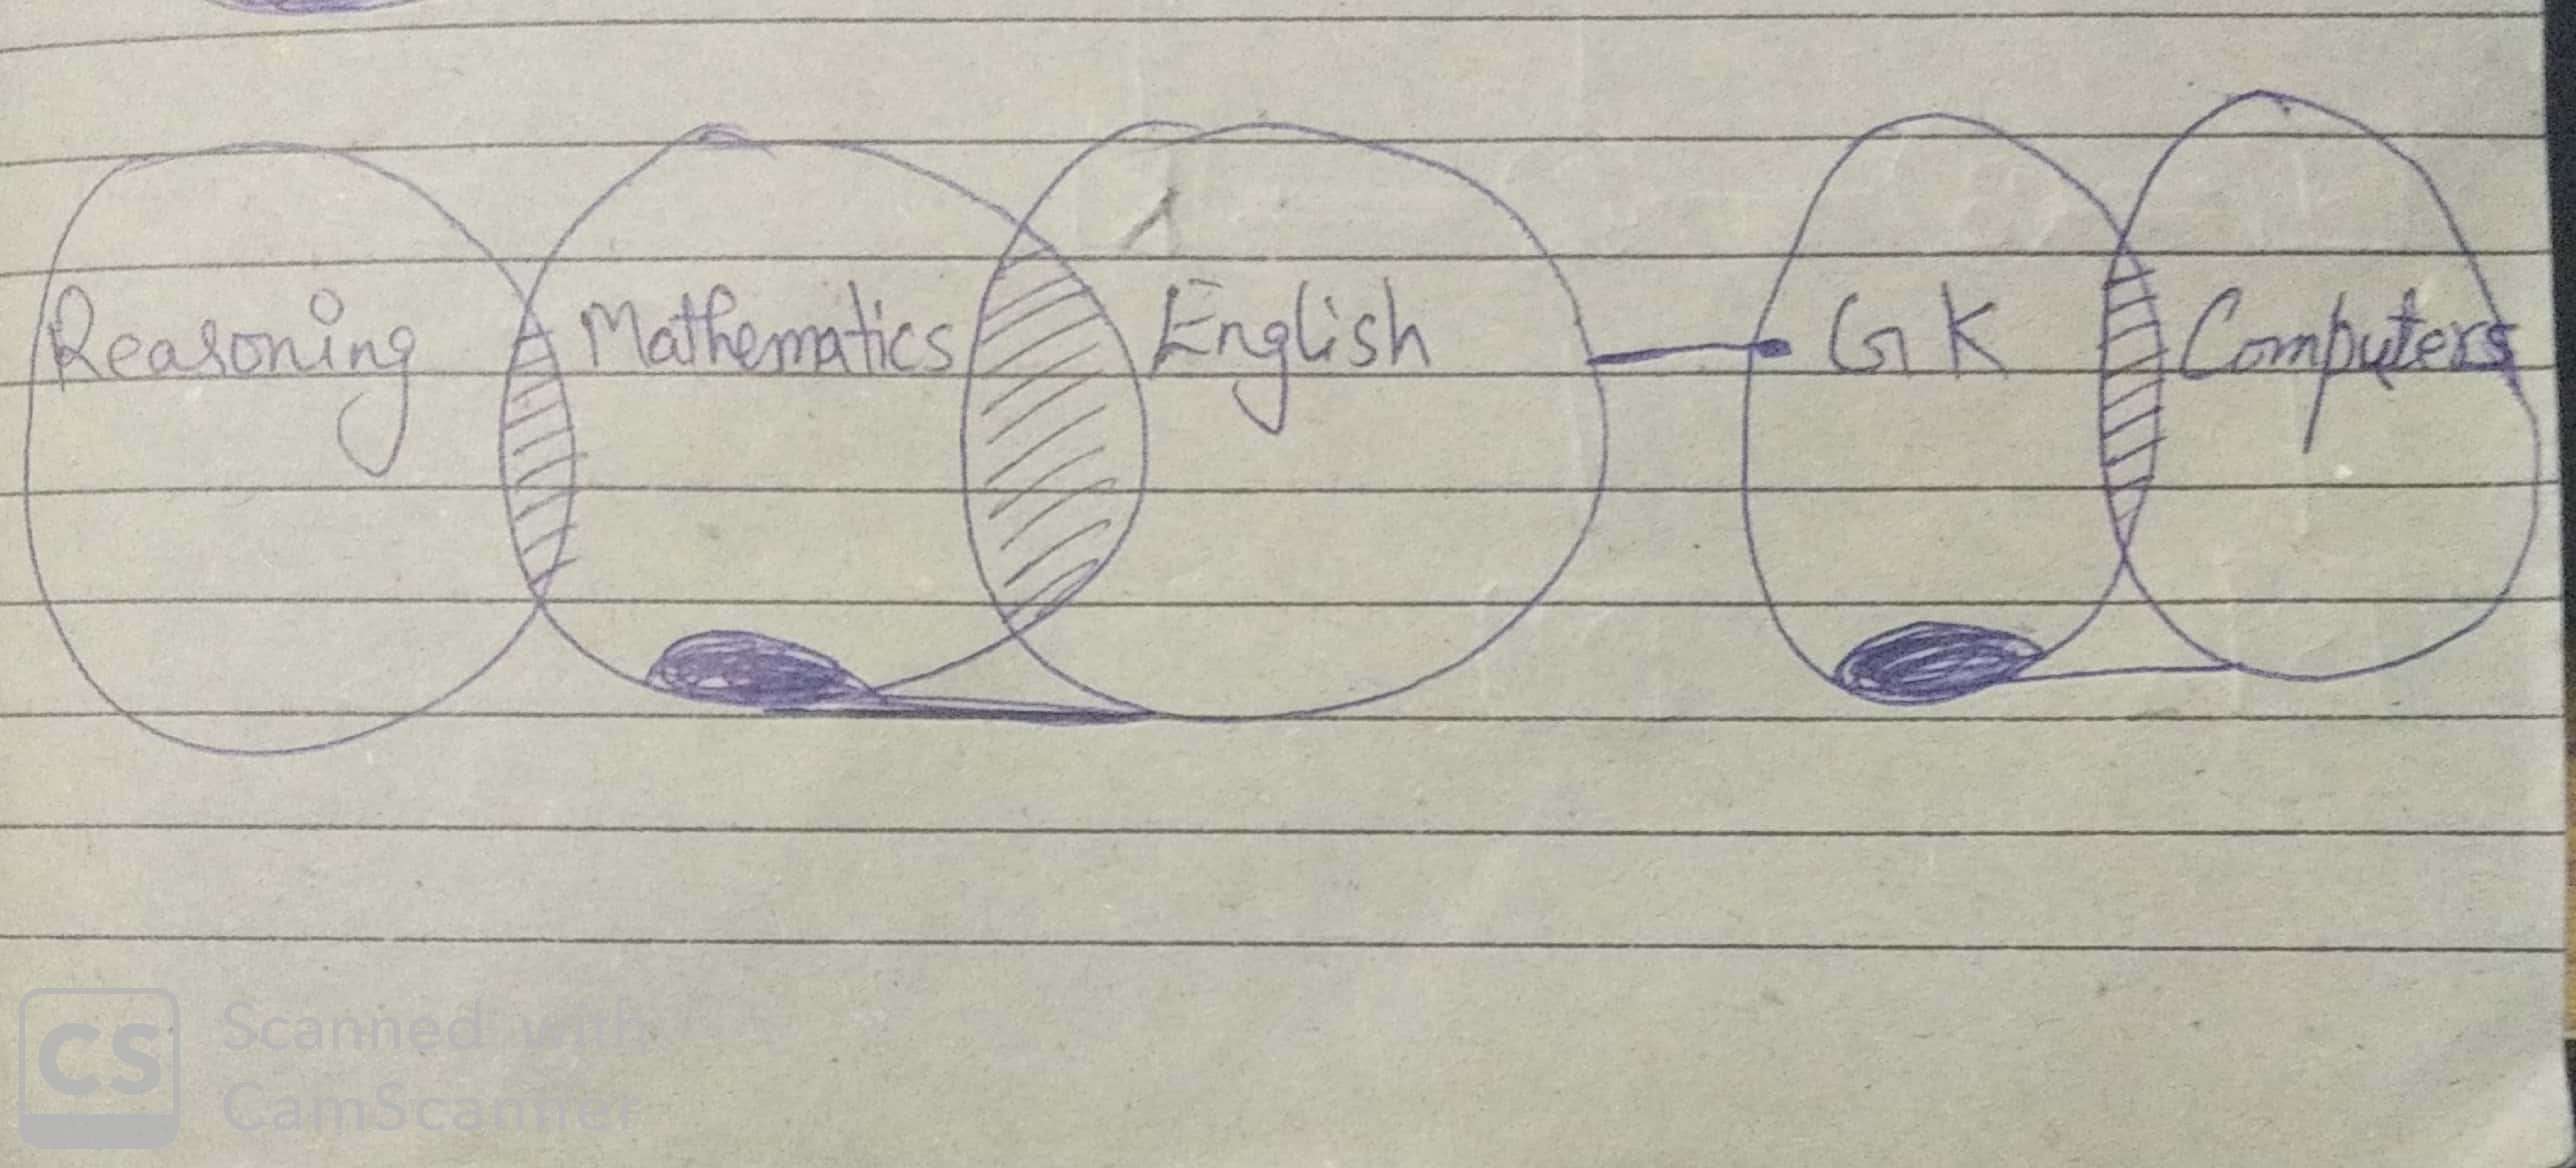 Reasoning Mathematics English GK Computers
CS Scanned with
CamScanner